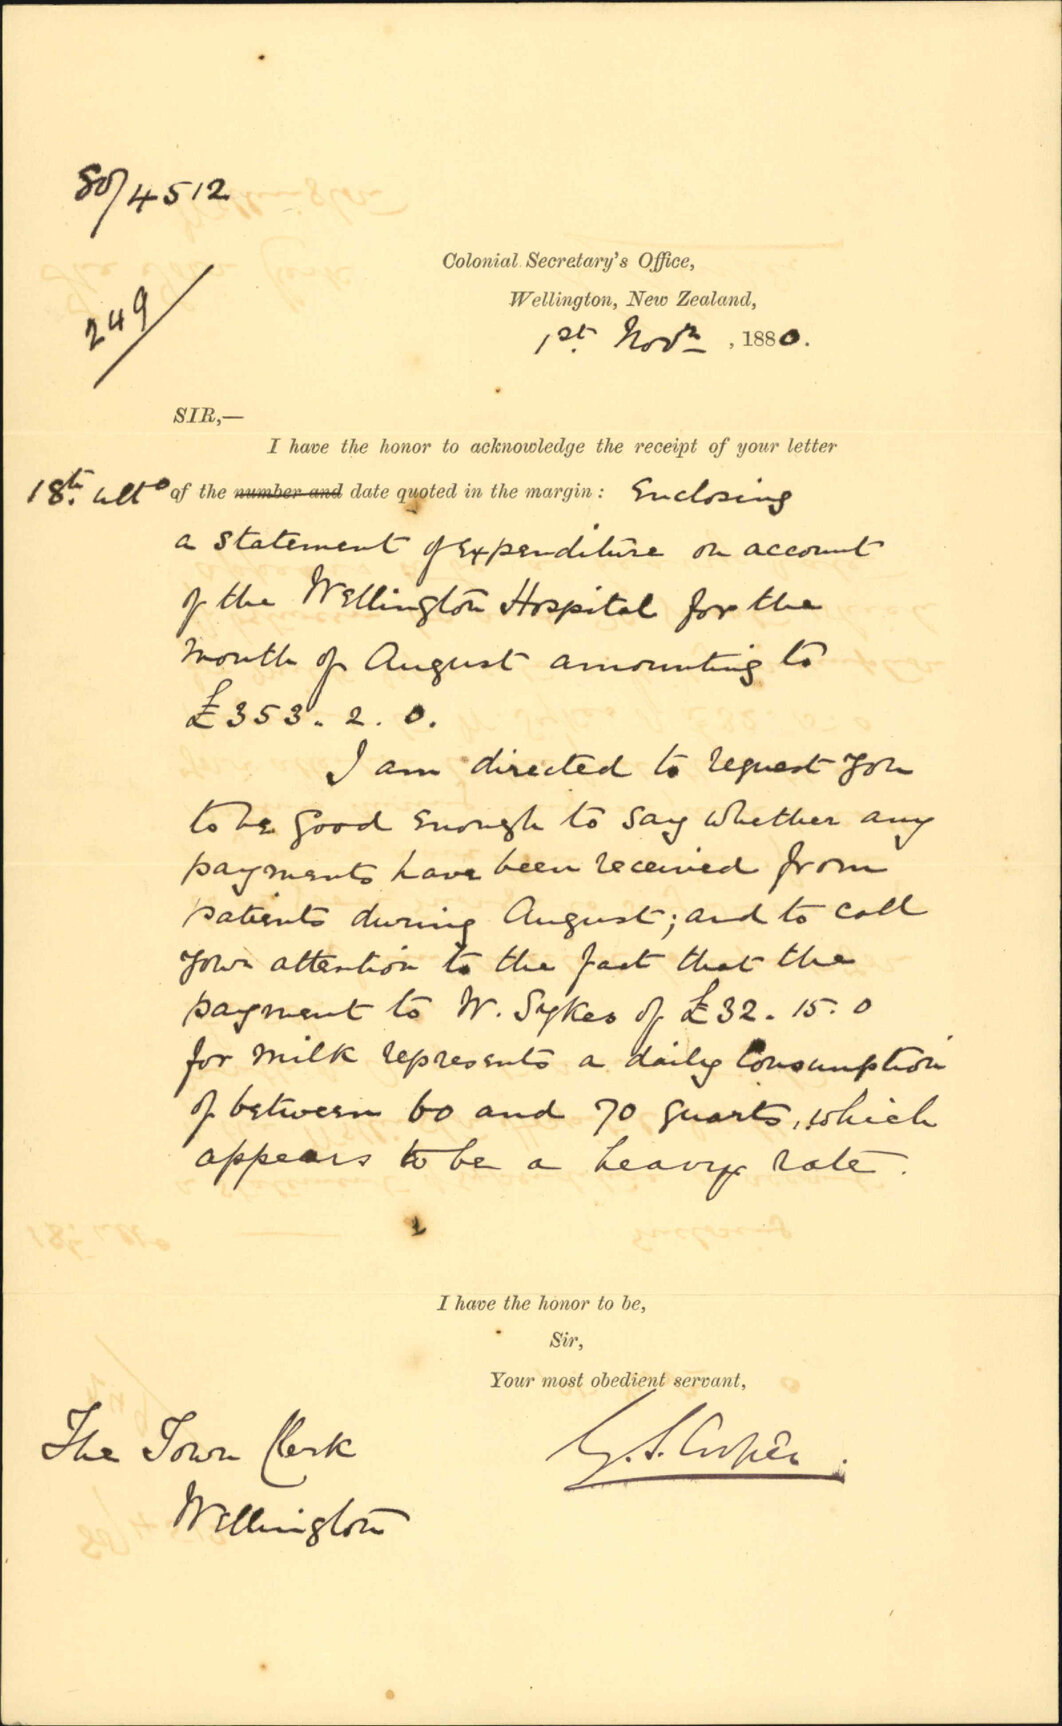 80/4512
249
Colonial Secretary's Office,
Wellington, New Zealand,
1st. Novr , 1880.
SIR,—
I have the honor to acknowledge the receipt of your letter
18th. ulto of the number and date quoted in the margin: Enclosing
a statement of expenditure on account
of the Wellington Hospital for the
month of August amounting to
£353. 2. 0.
I am directed to request you
to be good enough to say whether any
payments have been received from
patients during August; and to call
your attention to the fact that the
payment to W. Sykes of £32. 15. 0
for milk represents a daily consumption
of between 60 and 70 quarts, which
appears to be a heavy rate.
I have the honor to be,
Sir,
Your most obedient servant,
G. S. Cooper.
The Town Clerk
Wellington